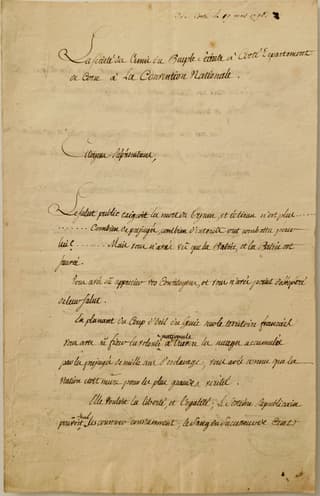 La Société des Amis du Peuple à Corté Département
de Corse à La Convention Nationale.
Citoyens Représentans,
Le salut public exigeoit la mort du Tyran, et le tiran n'est plus
Combien de préjugés, combien d'interets ont combattu pour
lui? Mais vous n'avés vû que la Patrie, et la Patrie est
sauvée.
Vous avés sû apprécier vos Concitoyens, et vous n'avés point désespéré
de leur salut.
En planant du Coup d'œil du Génie sur le territoire français
vous avés sû fixer la volonté nationale à travers les nuages accumulés
par les préjugés de mille ans d'esclavage; vous avés connu que la
Nation étoit mure pour les plus grandes vérités.
Elle vouloit la liberté, et l'égalité; le Sistême républicain
pouvoit seul les couronner constamment; le Sang du